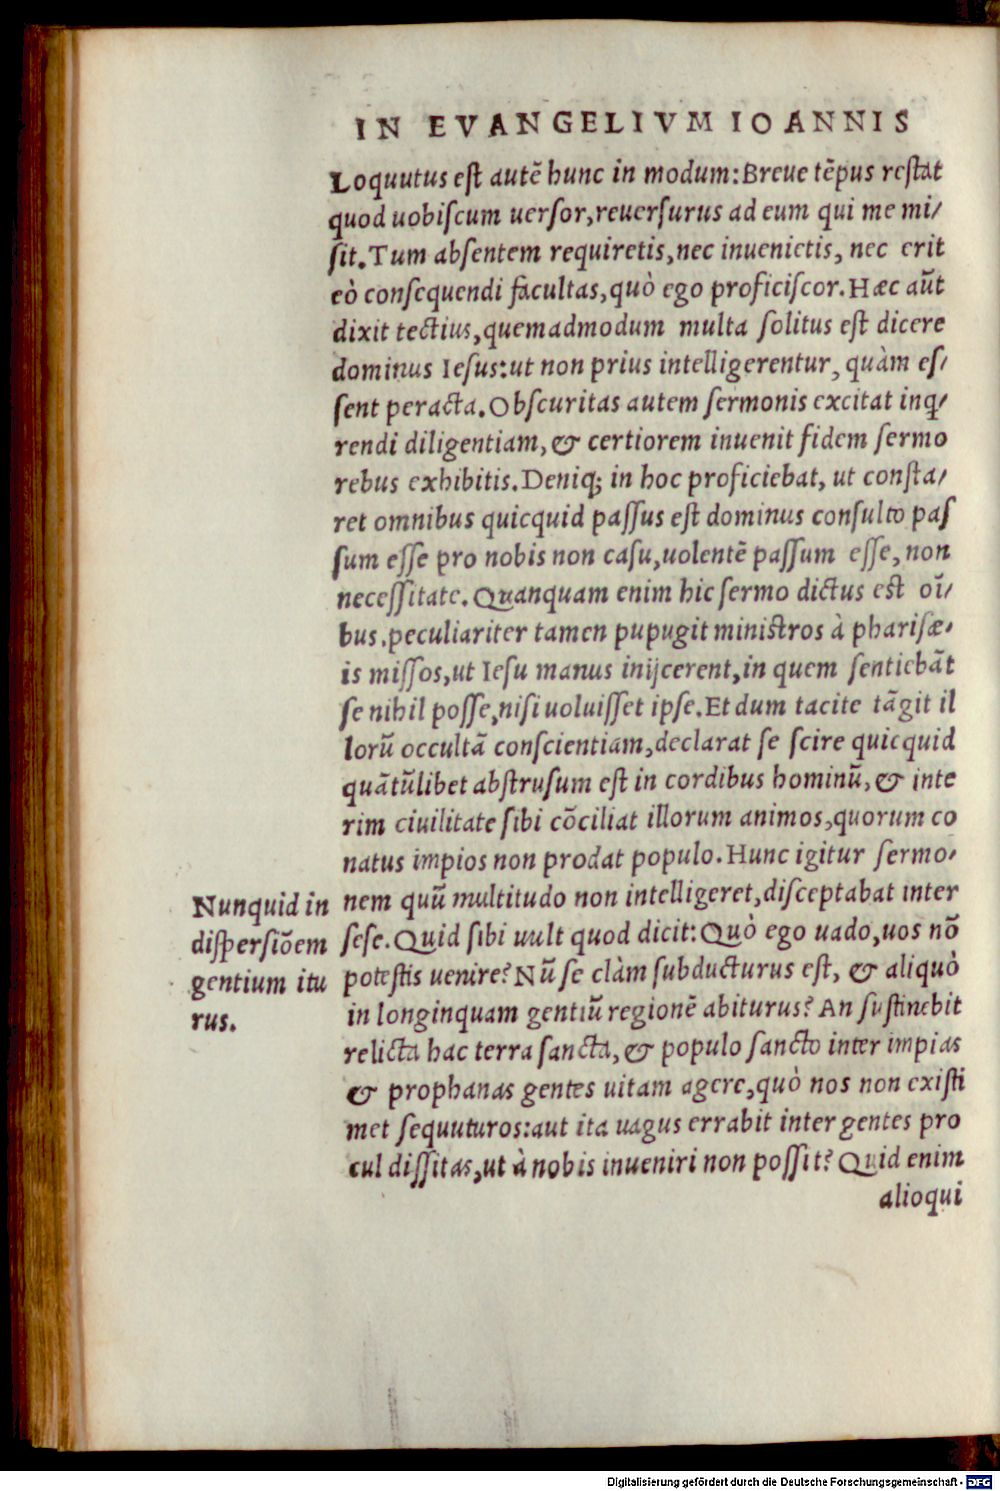 IN EVANGELIVM IOANNIS
Loquutus est autē hunc in modum: Breue tēpus restat
quod uobiscum uersor, reuersurus ad eum qui me mi/
sit. Tum absentem requiretis, nec inuenietis, nec erit
eò consequendi facultas, quò ego proficiscor. Hæc aūt
dixit tectius, quemadmodum multa solitus est dicere
dominus Iesus: ut non prius intelligerentur, quàm es/
sent peracta. Obscuritas autem sermonis excitat inq̃/
rendi diligentiam, & certiorem inuenit fidem sermo
rebus exhibitis. Deniq; in hoc proficiebat, ut consta/
ret omnibus quicquid passus est dominus consulto pas
sum esse pro nobis non casu, uolentē passum esse, non
necessitate. Quanquam enim hic sermo dictus est oī/
bus. peculiariter tamen pupugit ministros à pharisæ/
is missos, ut Iesu manus inijcerent, in quem sentiebāt
se nihil posse, nisi uoluisset ipse. Et dum tacite tāgit il
lorū occultā conscientiam, declarat se scire quicquid
quātūlibet abstrusum est in cordibus hominū, & inte
rim ciuilitate sibi cōciliat illorum animos, quorum co
natus impios non prodat populo. Hunc igitur sermo/
nem quū multitudo non intelligeret, disceptabat inter
sese. Quid sibi uult quod dicit: Quò ego uado, uos nō
potestis uenire? Nū se clàm subducturus est, & aliquò
in longinquam gentiū regionē abiturus? An sustinebit
relicta hac terra sancta, & populo sancto inter impias
& prophanas gentes uitam agere, quò nos non existi
met sequuturos: aut ita uagus errabit inter gentes pro
cul dissitas, ut à nobis inueniri non possit? Quid enim
alioqui
Nunquid in
dispersiōem
gentium itu
rus.
Digitalisierung gefördert durch die Deutsche Forschungsgemeinschaft - DFG